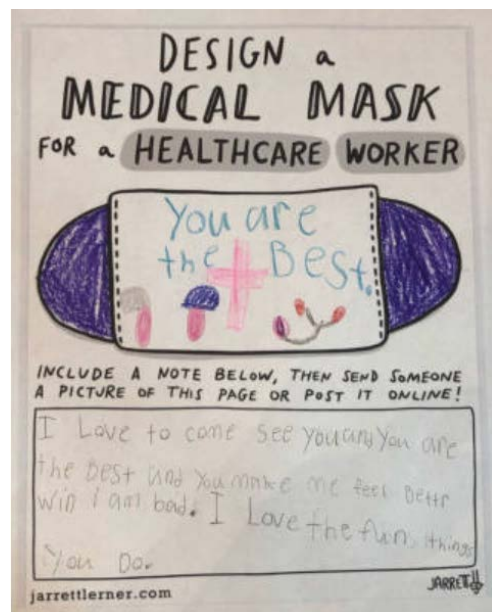 DESIGN a
MEDICAL MASK
FOR a HEALTHCARE WORKER
You are
the Best.
INCLUDE A NOTE BELOW, THEN SEND SOMEONE
A PICTURE OF THIS PAGE OR POST IT ONLINE!
I Love to come see you and You are
the Best and You make me feel Bettr
win i am bad. I Love the fun things
You Do.
JARRETT
jarrettlerner.com